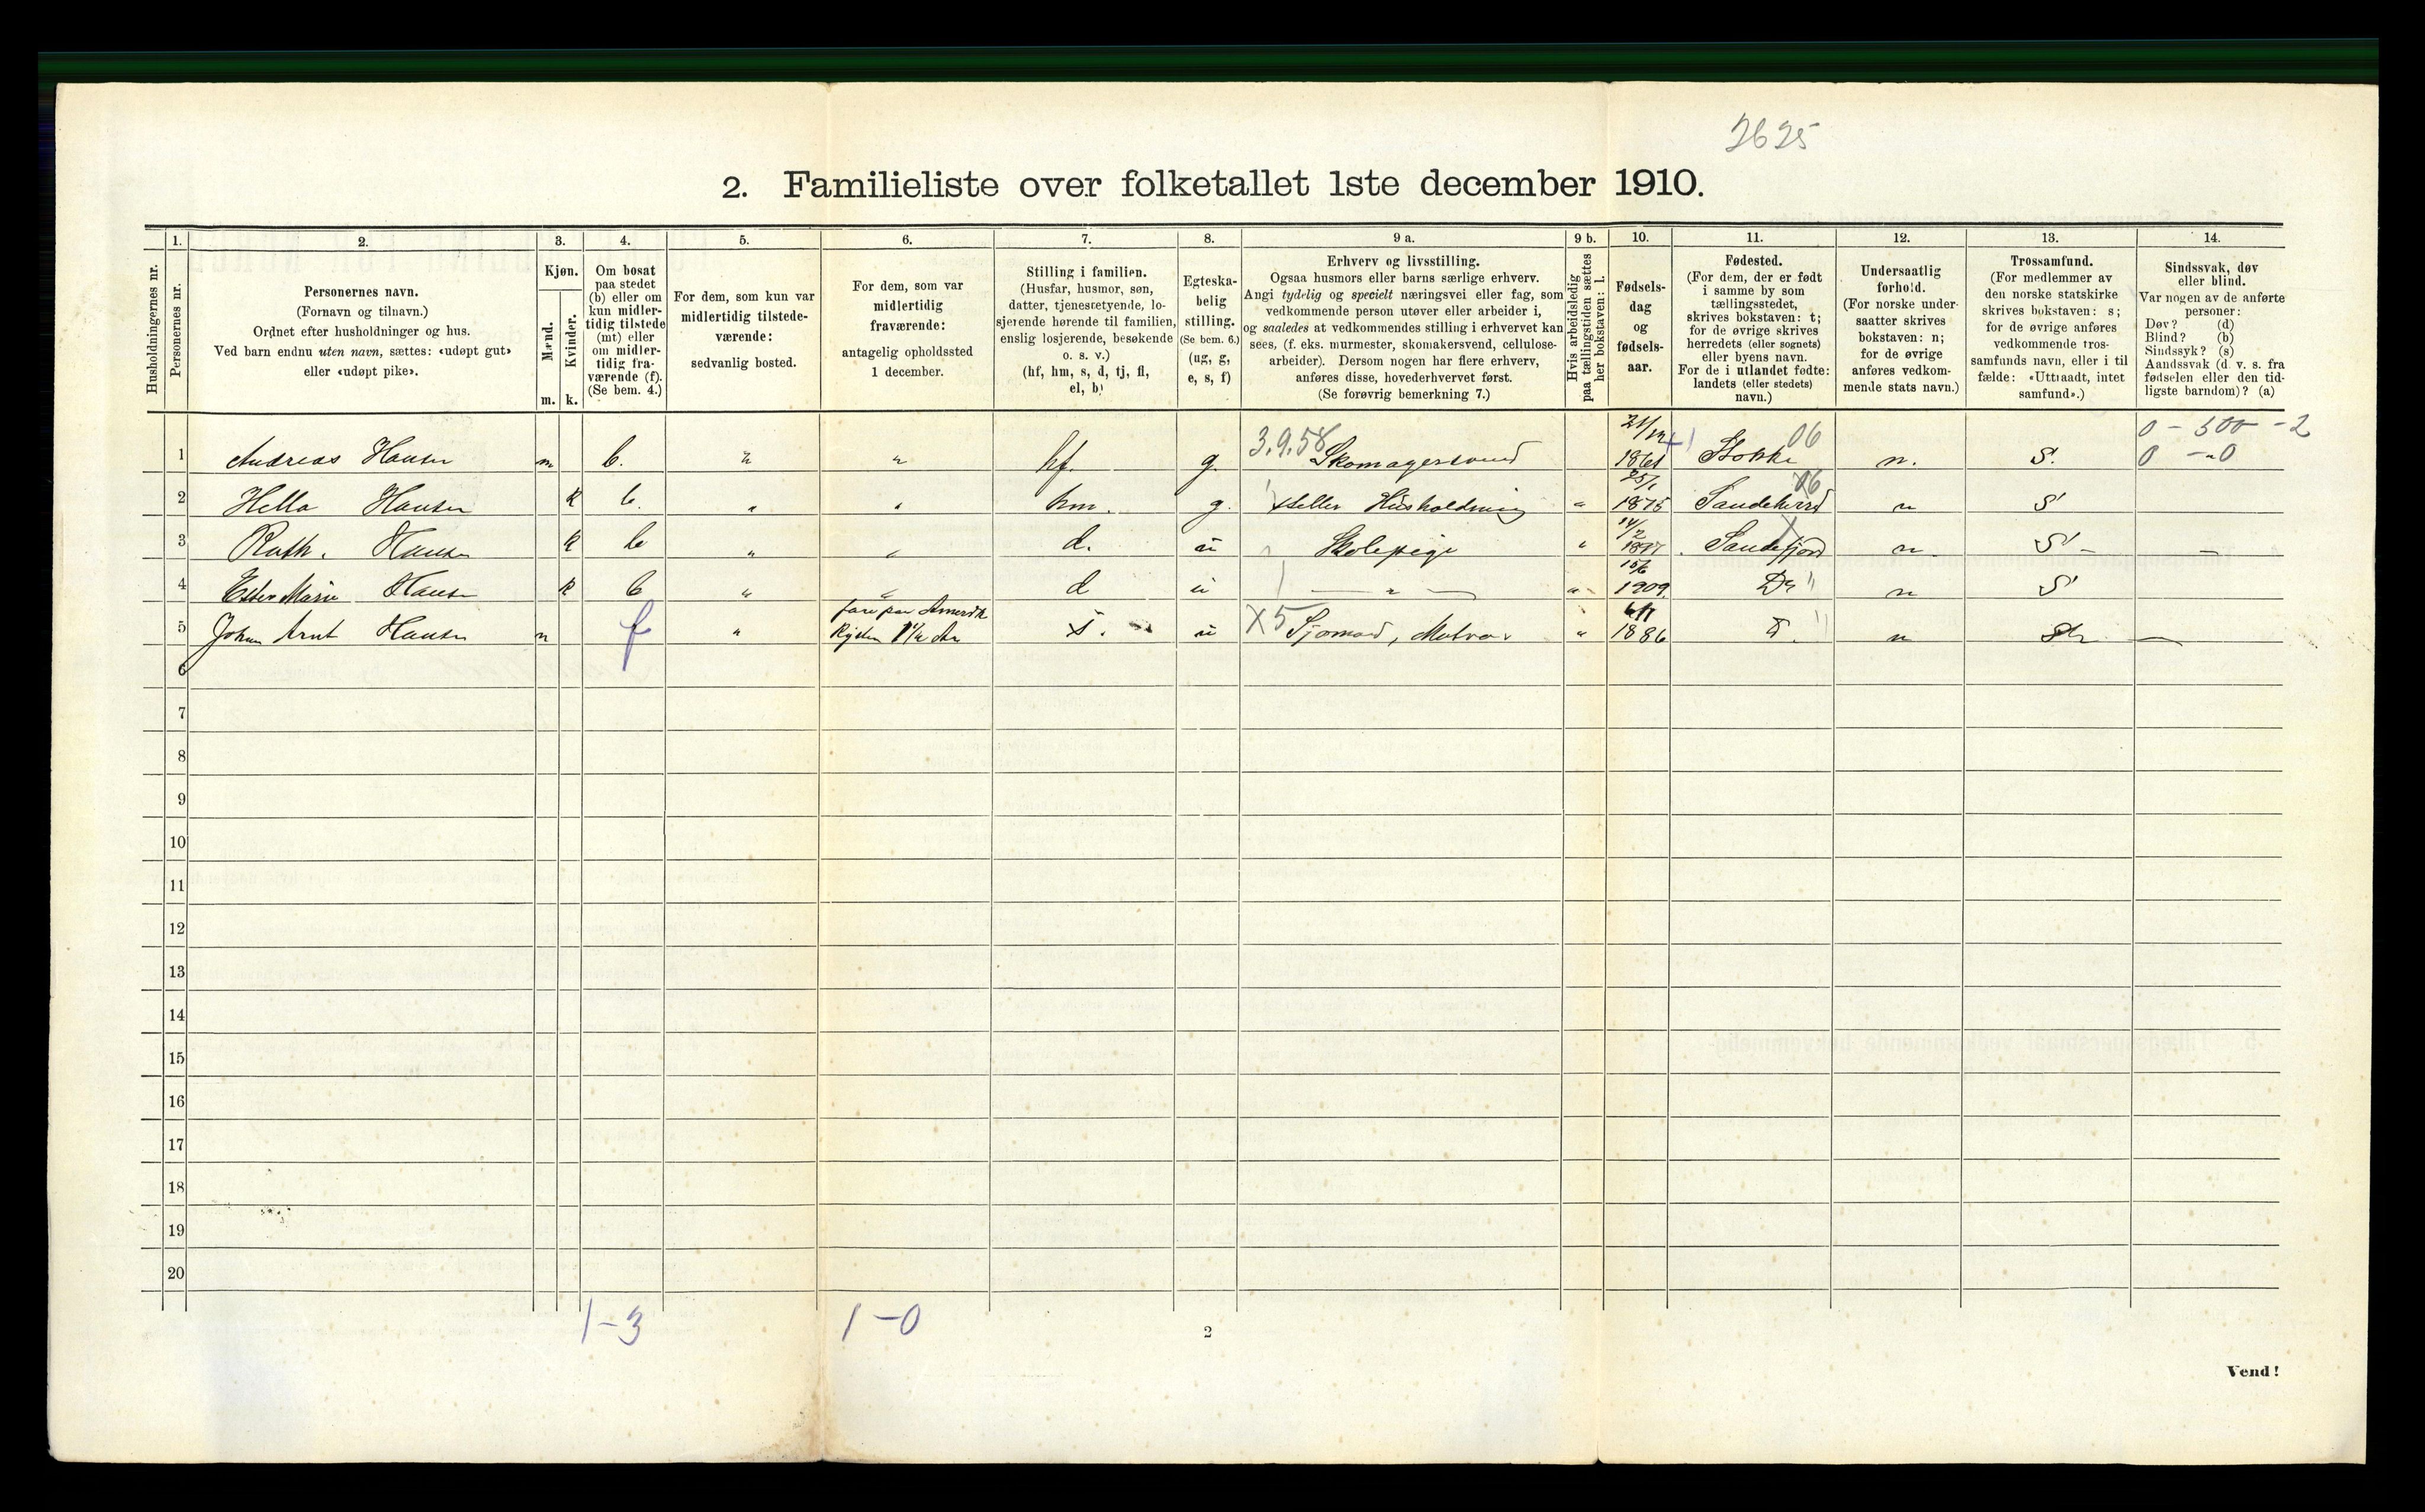 2625
2. Familieliste over folketallet 1ste december 1910.
Husholdningernes nr.
1.
Personernes nr.
2.
Personernes navn.
(Fornavn og tilnavn.)
Ordnet efter husholdninger og hus.
Ved barn endnu uten navn, sættes: «udøpt gut»
eller «udøpt pike».
3.
Kjøn.
Mænd.
Kvinder.
m. k.
4.
Om bosat
paa stedet
(b) eller om
kun midler-
tidig tilstede
(mt) eller
om midler-
tidig fra-
værende (f).
(Se bem. 4.)
5.
For dem, som kun var
midlertidig tilstede-
værende:
sedvanlig bosted.
6.
For dem, som var
midlertidig
fraværende:
antagelig opholdssted
1 december.
7.
Stilling i familien.
(Husfar, husmor, søn,
datter, tjenestetyende, lo-
sjerende hørende til familien,
enslig losjerende, besøkende
o. s. v.)
(hf, hm, s, d, tj, fl,
el, b)
8.
Egteska-
belig
stilling.
(Se bem. 6.)
(ug, g,
e, s, f)
9 a.
Erhverv og livsstilling.
Ogsaa husmors eller barns særlige erhverv.
Angi tydelig og specielt næringsvei eller fag, som
vedkommende person utøver eller arbeider i,
og saaledes at vedkommendes stilling i erhvervet kan
sees, (f. eks. murmester, skomakersvend, cellulose-
arbeider). Dersom nogen har flere erhverv,
anføres disse, hovederhvervet først.
(Se forøvrig bemerkning 7.)
9 b.
Hvis arbeidsledig
paa tællingstiden sættes
her bokstaven: l.
10.
Fødsels-
dag
og
fødsels-
aar.
11.
Fødested.
(For dem, der er født
i samme by som
tællingsstedet,
skrives bokstaven: t;
for de øvrige skrives
herredets (eller sognets)
eller byens navn.
For de i utlandet fødte:
landets (eller stedets)
navn.)
12.
Undersaatlig
forhold.
(For norske under-
saatter skrives
bokstaven: n;
for de øvrige
anføres vedkom-
mende stats navn.)
13.
Trossamfund.
(For medlemmer av
den norske statskirke
skrives bokstaven: s;
for de øvrige anføres
vedkommende tros-
samfunds navn, eller i til
fælde: «Uttraadt, intet
samfund».)
14.
Sindssvak, døv
eller blind.
Var nogen av de anførte
personer:
Døv? (d)
Blind? (b)
Sindssyk? (s)
Aandssvak (d. v. s. fra
fødselen eller den tid-
ligste barndom)? (a)
0 - 500 - 2
1 Andreas Hansen m b. " " hf. g. 3.9.58 Skomagersvend Stokke 06 n. S. 0 - 0
2 Hella Hansen k b. " " hm. g. steller Husholdning " 25/1 1875 Sandeherred 06 n S
3 Ruth. Hansen k b " " d. u Skolepige " 14/2 1897 Sandefjord n S - -
4 Ester Marie Hansen k b " " d u - " - " 1909. Do n S
5 Johan Arnt Hansen m f " s. u X5 Sjømand, Matros " 1886 n
6
7
8
9
10
11
12
13
14
15
16
17
18
19
20
1-3 1-0
2
Vend!